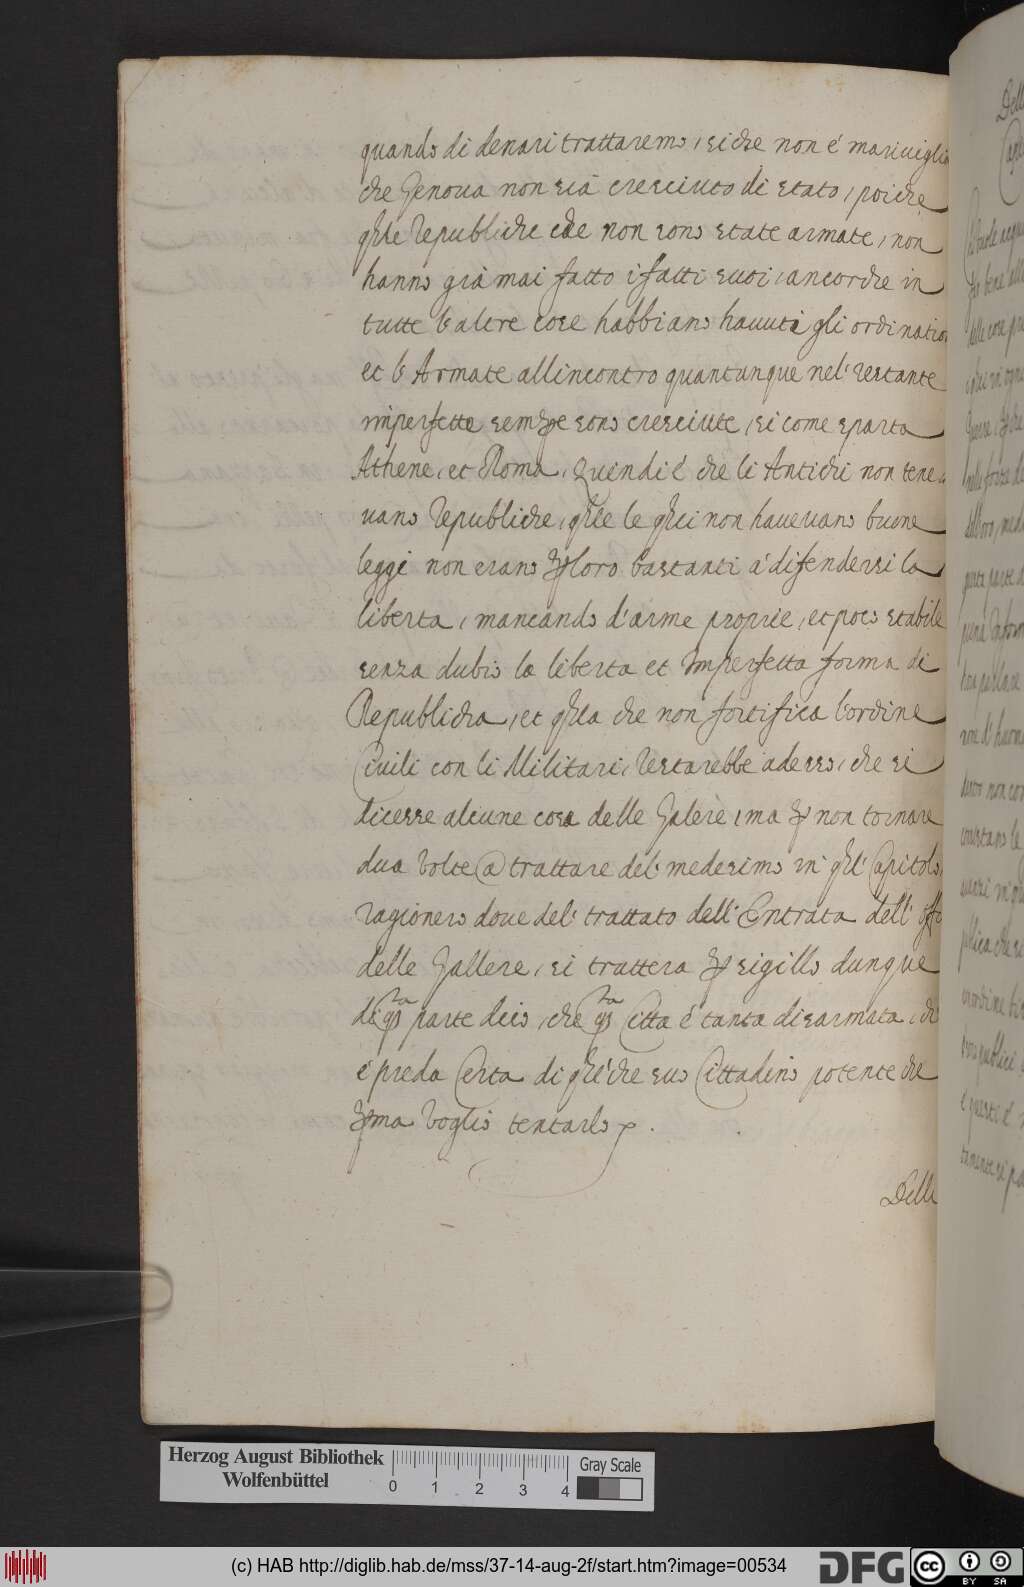 quando di denari trattaremo, si che non é marauiglia
che Genoua non sia cresciuto di stato, poiche
qlle Republiche che non sono state armate, non
hanno già mai fatto i fatti suoi, ancorche in
tutte l'altre cose habbiano hauuti gli ordinatio
et l'Armate allincontro quantunque nel' restante
imperfette sempre sono cresciute, si come sparta
Athene, et Roma, quindi é che li Antichi non tene
uano Republiche, qlle le qli non haueuano buone
leggi non erano p loro bastanti á difendersi la
liberta, mancando d'arme proprie, et poco stabile
senza dubio la liberta et imperfetta forma di
Republicha, et qlla che non fortifica l'ordine
Ciuili con li Militari, Restarebbe adesso, che si
dicesse alcune cosa delle Galere, ma p non tornare
dua volte a trattare del' medesimo in ql' Capitolo
ragionero doue del' trattato dell' Entrata dell' offo
delle Gallere, si trattera p sigillo dunque
di qsta parte dico, che qsta Citta é tanto disarmata, ch'
é preda Certa di ql' che suo Cittadino potente che
pma voglio tentarlo.
Delle
Herzog August Bibliothek
Wolfenbüttel
0 1 2 3 4
Gray Scale
(c) HAB http://diglib.hab.de/mss/37-14-aug-2f/start.htm?image=00534
DFG
cc BY SA